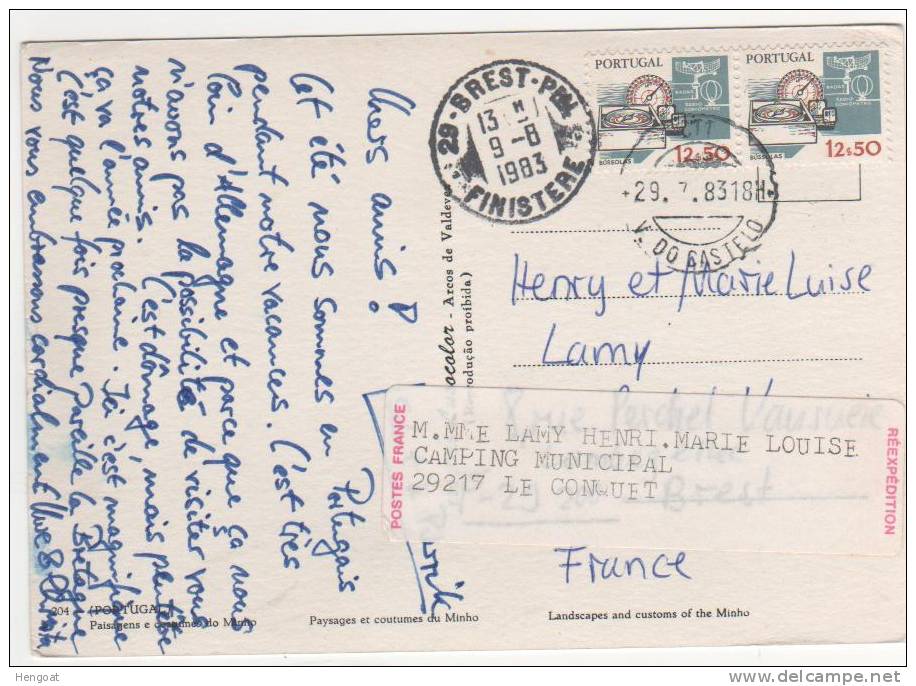 Chers amis!
Cet été nous sommes en Portugais
pendant notre vacances. C'est très
loin d'Allemagne et parce que ça nous
n'avons pas la possibilité de visiter vous
notres amis. C'est domage mais peutetre
ça va l'année prochaine. Ici c'est magnifique
C'est quelque fois presque pareille la Bretagne
Nous vous embrassons cordialement Uwe &
29-BREST-PPAL
13 H
9-8
1983
FINISTERE
PORTUGAL
RADAR
RADIO
GONIOMETRO
BÚSSOLAS
12$50
PORTUGAL
RADAR
RADIO
GONIOMETRO
BÚSSOLAS
12$50
CTT
29.7.83 18H
V. DO CASTELO
Henry et Marie Luise
Lamy
Brest
France
POSTES FRANCE
M.MME LAMY HENRI.MARIE LOUISE
CAMPING MUNICIPAL
29217 LE CONQUET
RÉEXPÉDITION
ocolor - Arcos de Valdeve
rodução proibida)
204 (PORTUGAL)
Paisagens e costumes do Minho
Paysages et coutumes du Minho
Landscapes and customs of the Minho
Hengoat
www.delcampe.net